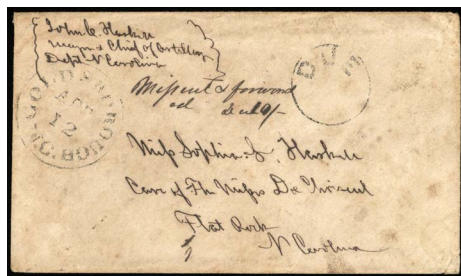 John C. Haskell
Major & Chief of Artillery
Dept N Carolina
GOLDSBOROUGH
N.C.
12
DUE
Missent & forward
ed
Miss Sophia L. Haskell
Care of The Misses De Choiseul
Flat Rock
N Carolina